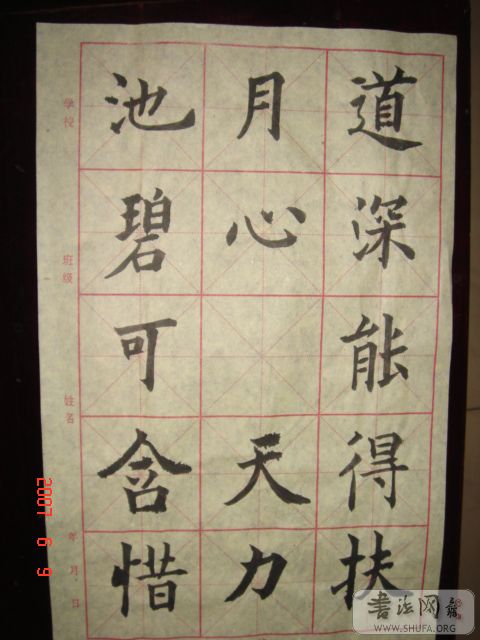 道深能得扶
月心天力
池碧可含惜
学校
班级
姓名
年 月 日
2007 6 9
书法网
WWW.SHUFA.ORG